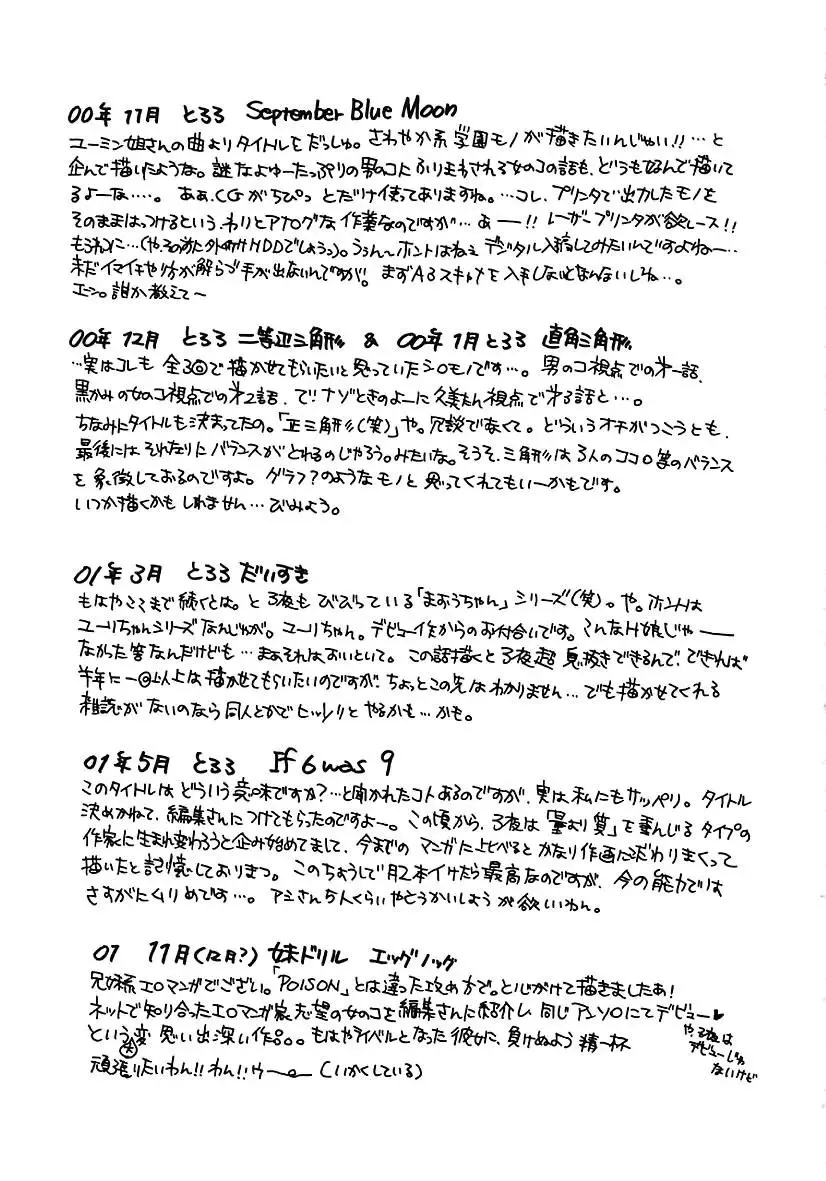 00年11月 とろろ September Blue Moon
ユーミン姐さんの曲よりタイトルをだっしゅ。さわやか系学園モノが描きたいんじゃい!!…と
企んで描いたような。謎なよゆーたっぷりの男のコにふりまわされる女のコの話も、どうもなんで描いて
るよーな…。ああ、CGがちびっとだけ使ってありますね。…コレ、プリンタで出力したモノを
そのままはっつけるという、わりとアナログな作業なのですが…あー!!レーザープリンタが欲しース!!
もろもろに…(や、その前に外付けHDDでしょうっ)。ううん~ホントはねぇデジタル入稿してみたいんですよねー…
未だイマイチやり方が解らず手が出ないんですが。まずA3スキャナを入手しないとなんないしね…。
エーン。誰か教えて~
00年12月 とろろ 二等辺三角形 & 00年1月とろろ 直角三角形
…実はコレも全3回で描かせてもらいたいと思っていたシロモノです…。男のコ視点での第一話、
黒かみの女のコ視点での第2話、で!ナゾときのよーに久美たん視点で第3話と…。
ちなみにタイトルも決まってたの。「正三角形(笑)」や。冗談でなくて。どういうオチがつこうとも、
最後にはそれなりにバランスがとれるのじゃろう。みたいな。そうそ、三角形は3人のココロ等のバランス
を象徴しておるのですよ。グラフ?のようなモノと思ってくれてもいーかもです。
いつか描くかもしれません…びみょう。
01年3月 とろろ だいすき
もはやここまで続くとは。と子夜もびびっている「まおうちゃん」シリーズ(笑)。や。ホントは
ユーリちゃんシリーズなんじゃが。ユーリちゃん。デビュー作からのお付合いです。こんなH娘じゃー
なかった筈なんだけども…まあそれはおいといて。この話描くと子夜超息抜きできるんで、できれば
半年に一回以上は描かせてもらいたいのですが、ちょっとこの先はわかりません…でも描かせてくれる
雑誌がないのなら同人とかでヒッソリとやるかも…かも。
01年5月 とろろ If 6 was 9
このタイトルはどういう意味ですか?…と聞かれたコトあるのですが、実は私にもサッパリ。タイトル
決めかねて、編集さんにつけてもらったのですよー。この頃から、子夜は「量より質」を重んじるタイプの
作家に生まれ変わろうと企み始めてまして、今までのマンガに比べるとかなり作画にこだわりまくって
描いたと記憶しておりまつ。このちょうしで月2本イけたら最高なのですが、今の能力では
さすがにムリめです…。アシさん5人くらいやとうかいしょうが欲いわん。
01 11月(12月?) 妹ドリル エッグノッグ
兄妹系エロマンガでござい。「POISON」とは違った攻め方で。と心がけて描きましたあ!
ネットで知り合ったエロマンガ家志望の女のコを編集さんに紹介し同じアンソにてデビュー♥
という変思い出深い作品。もはやライバルとなった彼女に、負けぬよう精一杯
頑張りたいわん!!わん!!ウー(いかくしている)
や、子夜は
デビューじゃ
ないけど